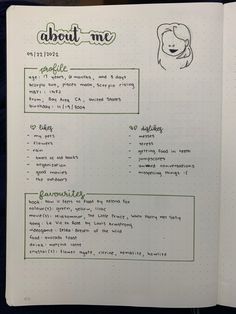 about me
05/22/2022
profile
age: 17 years, 6 months, and 3 days
scorpio sun, pisces moon, scorpio rising
MBTI: INFJ
from: Bay Area CA, United States
birthday: 11/19/2004
likes
- my pets
- flowers
- rain
- smell of old books
- organization
- good movies
- the outdoors
dislikes
- messes
- secrets
- getting food in teeth
- jumpscares
- awkward conversations
- misspelling things :(
favourites
book: How it feels to float by Helena Fox
colour(s): green, yellow, lilac
movie(s): Midsommar, The Little Prince, When Harry Met Sally
song: La Vie En Rose by Louis Armstrong
videogame: Zelda: Breath of the Wild
food: avocado toast
drink: matcha latte
crystal(s): flower agate, citrine,